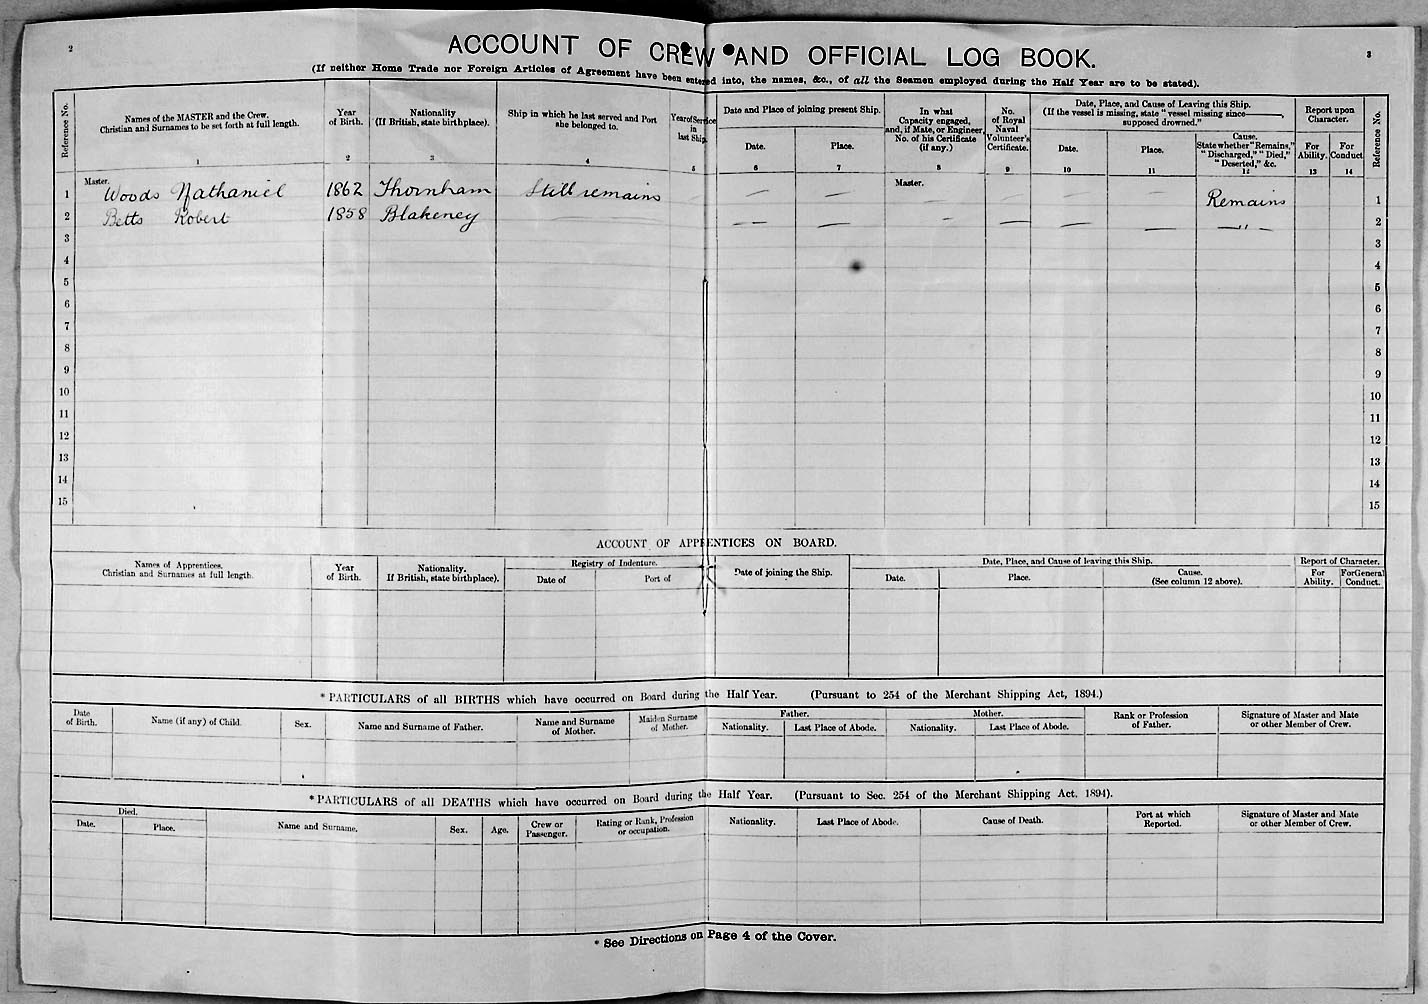 2
3
ACCOUNT OF CREW AND OFFICIAL LOG BOOK.
(If neither Home Trade nor Foreign Articles of Agreement have been entered into, the names, &c., of all the Seamen employed during the Half Year are to be stated).
Reference No.
Names of the MASTER and the Crew.
Christian and Surnames to be set forth at full length.
1
Year
of Birth.
2
Nationality
(If British, state birthplace).
3
Ship in which he last served and Port
she belonged to.
4
Year of Service
in
last Ship.
5
Date and Place of joining present Ship.
Date.
6
Place.
7
In what
Capacity engaged,
and, if Mate, or Engineer,
No. of his Certificate
(if any.)
8
No.
of Royal
Naval
Volunteer's
Certificate.
9
Date, Place, and Cause of Leaving this Ship.
(If the vessel is missing, state "vessel missing since———,
supposed drowned."
Date.
10
Place.
11
Cause.
State whether "Remains,"
"Discharged," "Died,"
"Deserted," &c.
12
Report upon
Character.
For
Ability.
13
For
Conduct
14
Reference No.
1 Master. Woods Nathaniel 1862 Thornham Still remains — — Master. — Remains 1
2 Betts Robert 1858 Blakeney — — — — — — — " — 2
3 3
4 4
5 5
6 6
7 7
8 8
9 9
10 10
11 11
12 12
13 13
14 14
15 15
ACCOUNT OF APPRENTICES ON BOARD.
Names of Apprentices.
Christian and Surnames at full length.
Year
of Birth.
Nationality.
If British, state birthplace).
Registry of Indenture.
Date of
Port of
Date of joining the Ship.
Date, Place, and Cause of leaving this Ship.
Date.
Place.
Cause.
(See column 12 above).
Report of Character.
For
Ability.
For General
Conduct.
* PARTICULARS of all BIRTHS which have occurred on Board during the Half Year. (Pursuant to 254 of the Merchant Shipping Act, 1894.)
Date
of Birth.
Name (if any) of Child.
Sex.
Name and Surname of Father.
Name and Surname
of Mother.
Maiden Surname
of Mother.
Father.
Nationality.
Last Place of Abode.
Mother.
Nationality.
Last Place of Abode.
Rank or Profession
of Father.
Signature of Master and Mate
or other Member of Crew.
* PARTICULARS of all DEATHS which have occurred on Board during the Half Year. (Pursuant to Sec. 254 of the Merchant Shipping Act. 1894).
Died.
Date.
Place.
Name and Surname.
Sex.
Age.
Crew or
Passenger.
Rating or Rank, Profession
or occupation.
Nationality.
Last Place of Abode.
Cause of Death.
Port at which
Reported.
Signature of Master and Mate
or other Member of Crew.
* See Directions on Page 4 of the Cover.